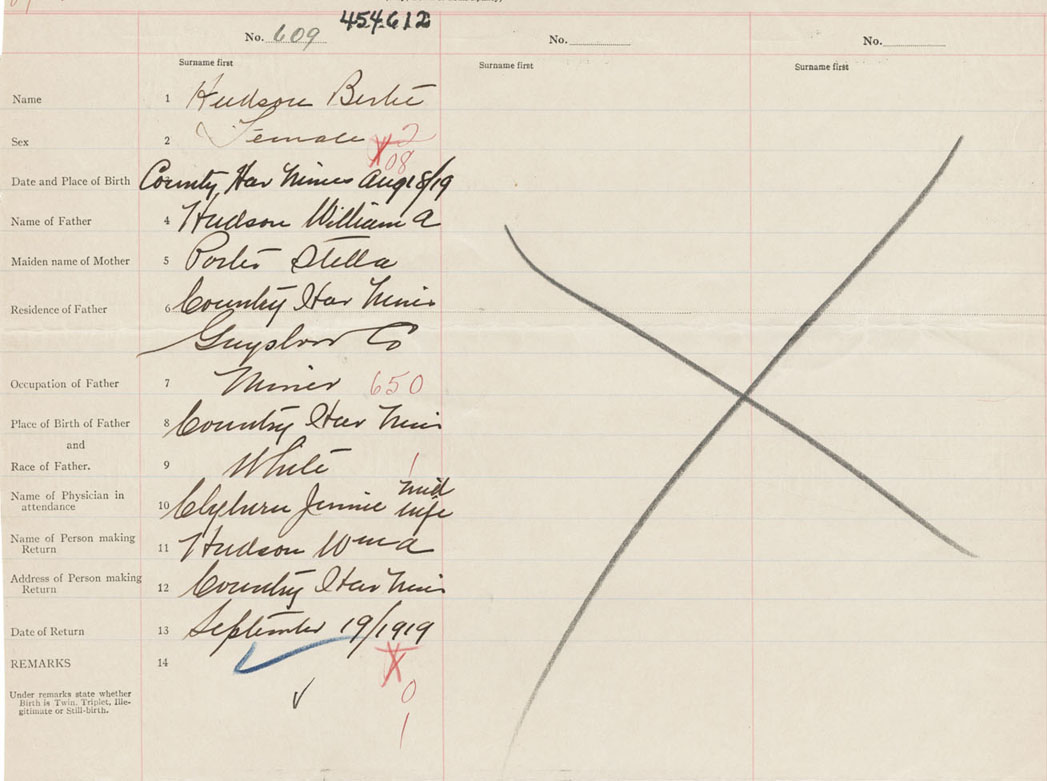 454612
No. 609
No.
No.
Surname first
Surname first
Surname first
Name 1 Hudson Bertie
Sex 2 Female 2
08
Date and Place of Birth County Har Mines Aug 18/19
Name of Father 4 Hudson William A
Maiden name of Mother 5 Porter Stella
Residence of Father 6 Country Har Mines
Guysboro Co
Occupation of Father 7 Miner 650
Place of Birth of Father 8 Country Har Mines
and
Race of Father. 9 White 1
Name of Physician in attendance 10 Clyburn Jennie mid wife
Name of Person making Return 11 Hudson Wm A
Address of Person making Return 12 Country Har Mines
Date of Return 13 September 19/1919
REMARKS 14
0
1
Under remarks state whether
Birth is Twin, Triplet, Ille-
gitimate or Still-birth.